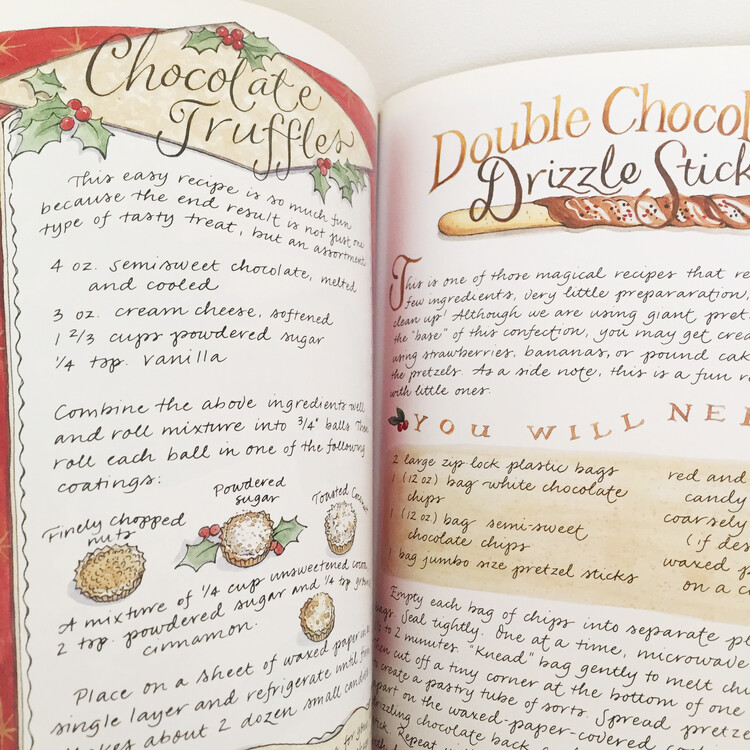 Chocolate
Truffles
This easy recipe is so much fun
because the end result is not just one
type of tasty treat, but an assortment
4 oz. semisweet chocolate, melted
and cooled
3 oz. cream cheese, softened
1 2/3 cups powdered sugar
1/4 tsp. vanilla
Combine the above ingredients well
and roll mixture into 3/4" balls. Then
roll each ball in one of the following
coatings:
Finely chopped
nuts
Powdered
sugar
Toasted
A mixture of 1/4 cup unsweetened cocoa,
2 tsp. powdered sugar and 1/4 tsp.
cinnamon.
Place on a sheet of waxed paper in a
single layer and refrigerate until firm
Makes about 2 dozen small candies
Double Chocol
Drizzle Stick
This is one of those magical recipes that re
few ingredients, very little prepararation,
clean up! Although we are using giant pret
the "base" of this confection, you may get crea
using strawberries, bananas, or pound cak
the pretzels. As a side note, this is a fun r
with little ones.
YOU WILL NEE
2 large zip lock plastic bags
1 (12 oz) bag white chocolate
chips
1 (12 oz.) bag semi-sweet
chocolate chips
1 bag jumbo size pretzel sticks
red and
candy
coarsely
(if des
waxed p
on a c
Empty each bag of chips into separate pl
bags. Seal tightly. One at a time, microwave
to 2 minutes. "Knead" bag gently to melt ch
then cut off a tiny corner at the bottom of one
to create a pastry tube of sorts. Spread pretz
apart on the waxed-paper-covered
drizzling chocolate back
Repeat